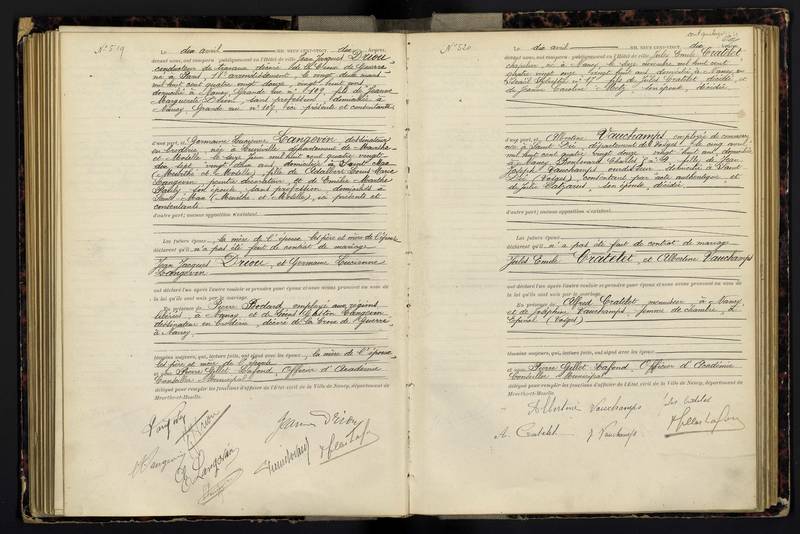 N° 519
Le dix avril MIL NEUF CENT VINGT, dix heures,
devant nous, ont comparu publiquement en l'Hôtel de ville Jean Jacques Driou
conducteur de travaux, décoré de la Croix de Guerre
né à Paris, 11e arrondissement, le vingt deux mars
mil huit cent quatre vingt douze, vingt huit ans,
domicilié à Nancy, Grande rue n° 109, fils de Jeanne
Marguerite Driou, sans profession, domiciliée à
Nancy Grande rue n° 109, ici présente et consentante
d'une part, et Germaine Lucienne Langevin dessinatrice
en broderie, née à Lunéville département de Meurthe-
et-Moselle, le six juin mil huit cent quatre vingt
dix sept, vingt deux ans, domiciliée à Saint Max
(Meurthe et Moselle), fille de Adalbert Louis Marie
Langevin, peintre décorateur, et de Emélie Marthe
son épouse, sans profession, domiciliés à
Saint-Max (Meurthe et Moselle), ici présents et
consentants
d'autre part; aucune opposition n'existant.
Les futurs époux, la mère de l'époux, les père et mère de l'épouse
déclarent qu'il n'a pas été fait de contrat de mariage
Jean Jacques Driou, et Germaine Lucienne
Langevin
ont déclaré l'un après l'autre vouloir se prendre pour époux et nous avons prononcé au nom de
la loi qu'ils sont unis par le mariage.
En présence de Pierre Bodard, employé aux régions
libérées, à Nancy, et de Louis Langevin
dessinateur en broderie, décoré de la Croix de Guerre,
à Nancy,
témoins majeurs, qui, lecture faite, ont signé avec les époux, la mère de l'époux
les père et mère de l'épouse
et nous Pierre Gillet Lafond, Officier d'Académie
Conseiller Municipal
délégué pour remplir les fonctions d'officier de l'État civil de la Ville de Nancy, département de
Meurthe-et-Moselle.
Langevin
Driou
Jeanne Driou
Langevin
E. Langevin
Gillet Lafond
N° 520
Le dix avril MIL NEUF CENT VINGT, dix heures,
devant nous, ont comparu publiquement en l'Hôtel de ville Jules Emile Cratelet
né à Nancy, le novembre mil huit cent
quatre vingt onze, vingt huit ans, domicilié à Nancy,
n° 17, fils de Jules Cratelet, décédé, et
de Jeanne Caroline Metz, son épouse, décédée,
d'une part, et Albertine Vauchamps, employée de commerce,
née à Saint Dié, département des Vosges, le cinq avril
mil huit cent quatre vingt douze, vingt huit ans, domiciliée
à Nancy, Boulevard Charles V n° 9, fille de Jean
Joseph Vauchamps, ourdisseur, domicilié à Saint
Dié (Vosges), consentant par acte authentique, et
de Julie son épouse, décédée,
d'autre part; aucune opposition n'existant.
Les futurs époux
déclarent qu'il n'a pas été fait de contrat de mariage
Jules Emile Cratelet, et Albertine Vauchamps
ont déclaré l'un après l'autre vouloir se prendre pour époux et nous avons prononcé au nom de
la loi qu'ils sont unis par le mariage.
En présence de Alfred Cratelet, monsieur, à Nancy,
et de Joséphine Vauchamps, femme de chambre, à
Epinal (Vosges)
témoins majeurs, qui, lecture faite, ont signé avec les époux
et nous Pierre Gillet Lafond, Officier d'Académie
Conseiller Municipal
délégué pour remplir les fonctions d'officier de l'État civil de la Ville de Nancy, département de
Meurthe-et-Moselle.
Albertine Vauchamps
Jules Cratelet
A. Cratelet
J Vauchamps
Gillet Lafond